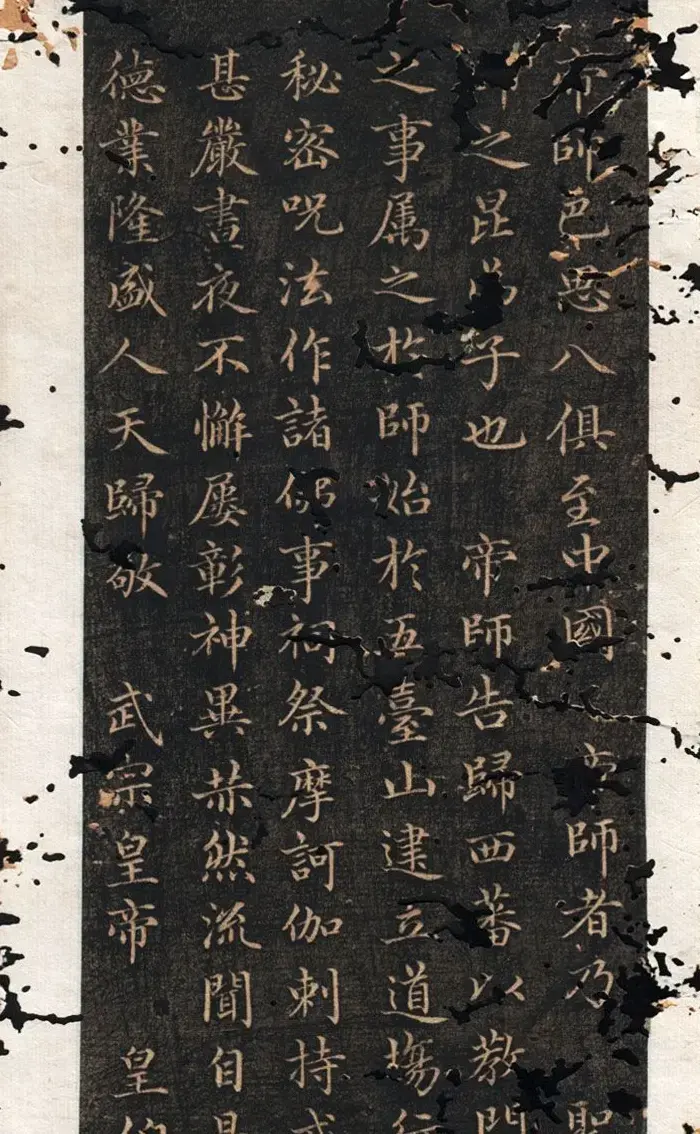 帝師邑思八俱至中國 帝師者乃 聖
師之昆弟子也 帝師告歸西蕃以教門
之事属之於師始於五臺山建立道場行
秘密呪法作諸佛事祠祭摩訶伽剌持戒
甚嚴晝夜不懈屢彰神異赫然流聞自是
德業隆盛人天歸敬 武宗皇帝 皇伯